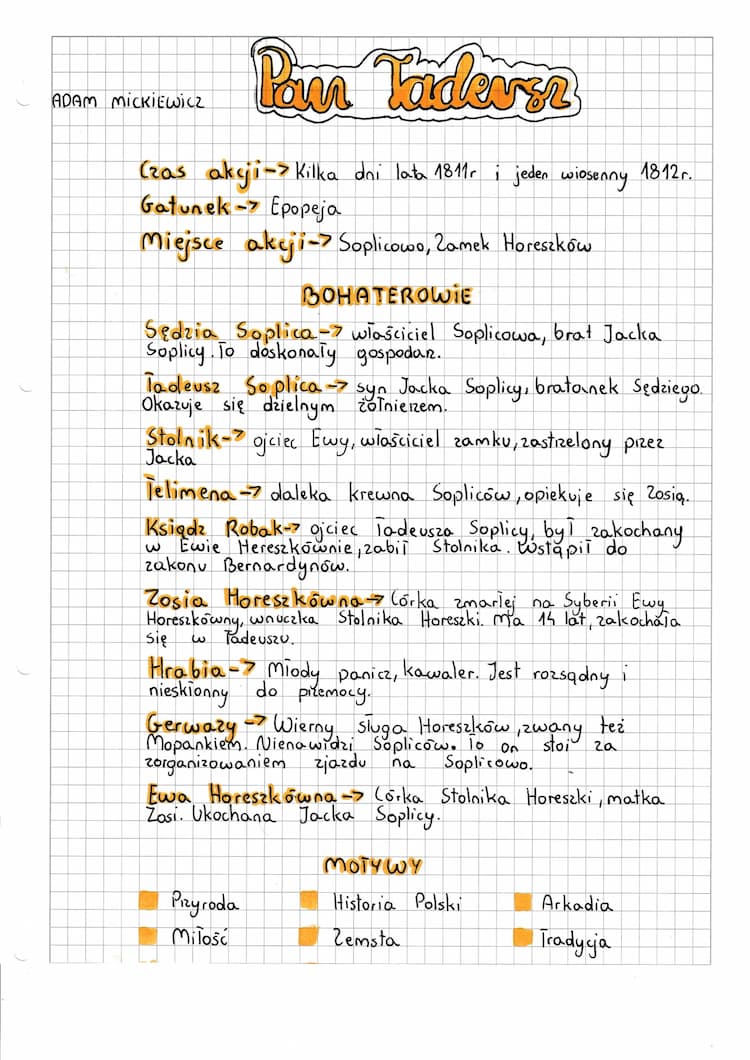 Pan Tadeusz
ADAM MICKIEWICZ
Czas akcji -> Kilka dni lata 1811r i jeden wiosenny 1812r.
Gatunek -> Epopeja
Miejsce akcji -> Soplicowo, Zamek Horeszków
BOHATEROWIE
Sędzia Soplica -> właściciel Soplicowa, brat Jacka
Soplicy. To doskonały gospodarz.
Tadeusz Soplica -> syn Jacka Soplicy, bratanek Sędziego.
Okazuje się dzielnym żołnierzem.
Stolnik -> ojciec Ewy, właściciel zamku, zastrzelony przez
Jacka
Telimena -> daleka krewna Sopliców, opiekuje się Zosią.
Ksiądz Robak -> ojciec Tadeusza Soplicy, był zakochany
w Ewie Hereszkównie, zabił Stolnika. Wstąpił do
zakonu Bernardynów.
Zosia Horeszkówna -> Córka zmarłej na Syberii Ewy
Horeszkówny, wnuczka Stolnika Horeszki. Ma 14 lat, zakochała
się w Tadeuszu.
Hrabia -> Młody panicz, kawaler. Jest rozsądny i
nieskłonny do przemocy.
Gerwazy -> Wierny sługa Horeszków, zwany też
Mopankiem. Nienawidzi Sopliców. To on stoi za
zorganizowaniem zjazdu na Soplicowo.
Ewa Horeszkówna -> Córka Stolnika Horeszki, matka
Zosi. Ukochana Jacka Soplicy.
MOTYWY
Przyroda Historia Polski Arkadia
Miłość Zemsta Tradycja